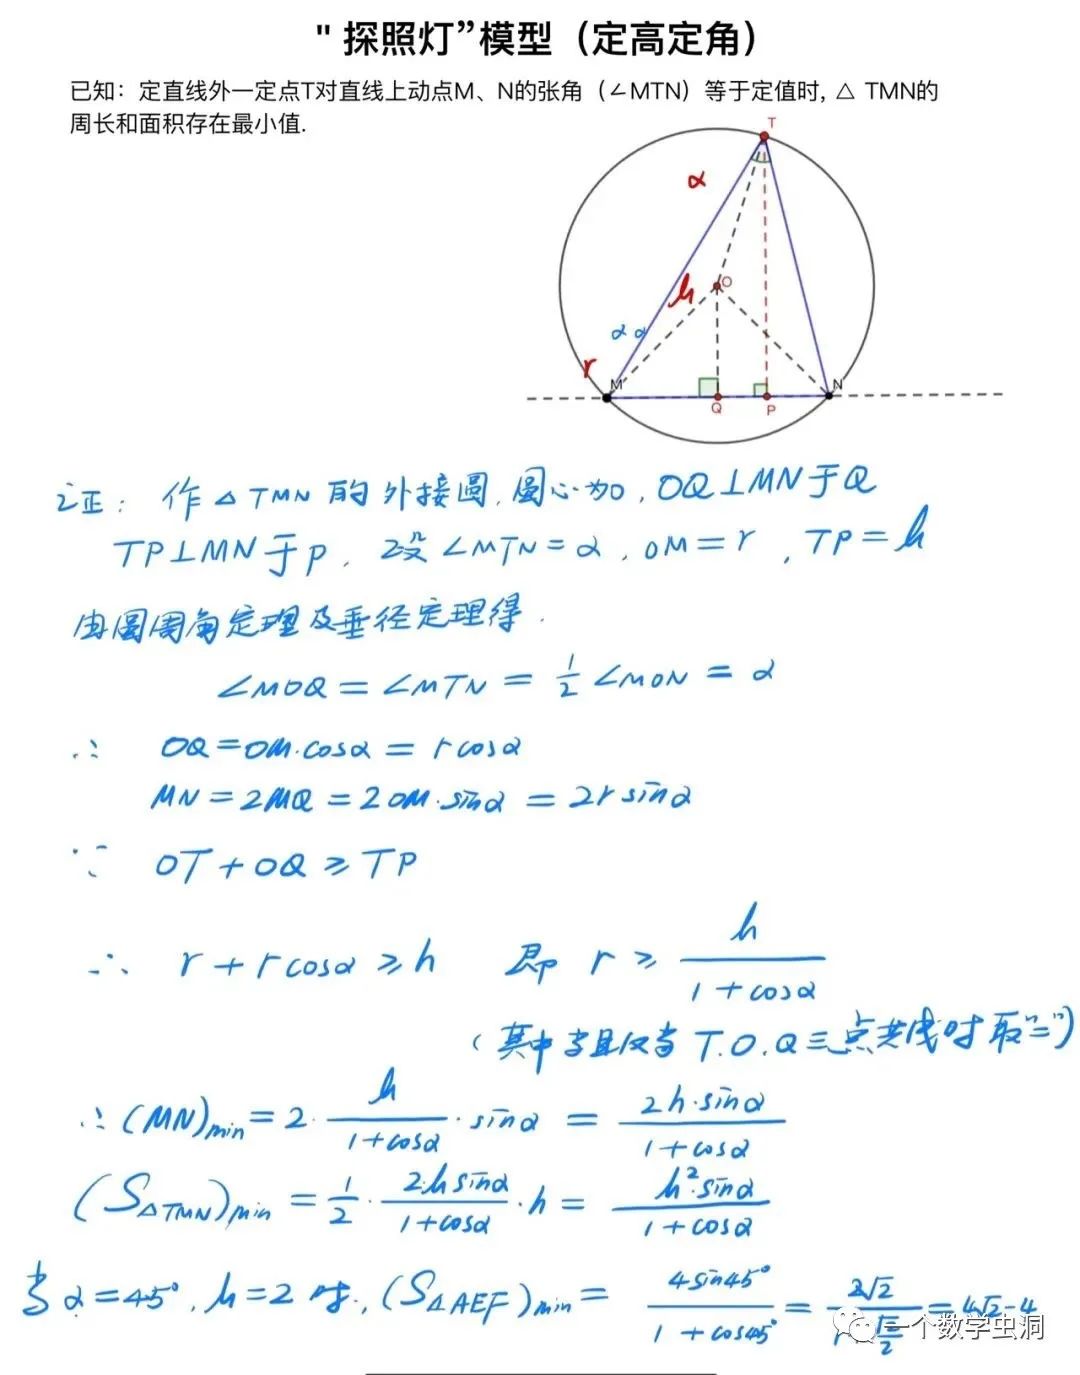 " 探照灯”模型（定高定角）
已知：定直线外一定点T对直线上动点M、N的张角（∠MTN）等于定值时, △ TMN的
周长和面积存在最小值.
T
α
O
h
α α
r
M
N
Q
P
证: 作△TMN的外接圆, 圆心为O, OQ⊥MN于Q
TP⊥MN于P, 设∠MTN=α, OM=r, TP=h
由圆周角定理及垂径定理得.
∠MOQ=∠MTN=1/2∠MON=α
∴ OQ=OM·cosα=rcosα
MN=2MQ=2OM·sinα=2rsinα
∵ OT+OQ≥TP
∴ r+rcosα≥h 即 r≥h/(1+cosα)
(其中当且仅当T.O.Q三点共线时取"=")
∴(MN)min=2·h/(1+cosα)·sinα=2h·sinα/(1+cosα)
(S△TMN)min=1/2·2·hsinα/(1+cosα)·h=h²·sinα/(1+cosα)
当α=45°,h=2时,(S△AEF)min=4sin45°/(1+cos45°)=2√2/(1+√2/2)=4√2-4
一个数学虫洞